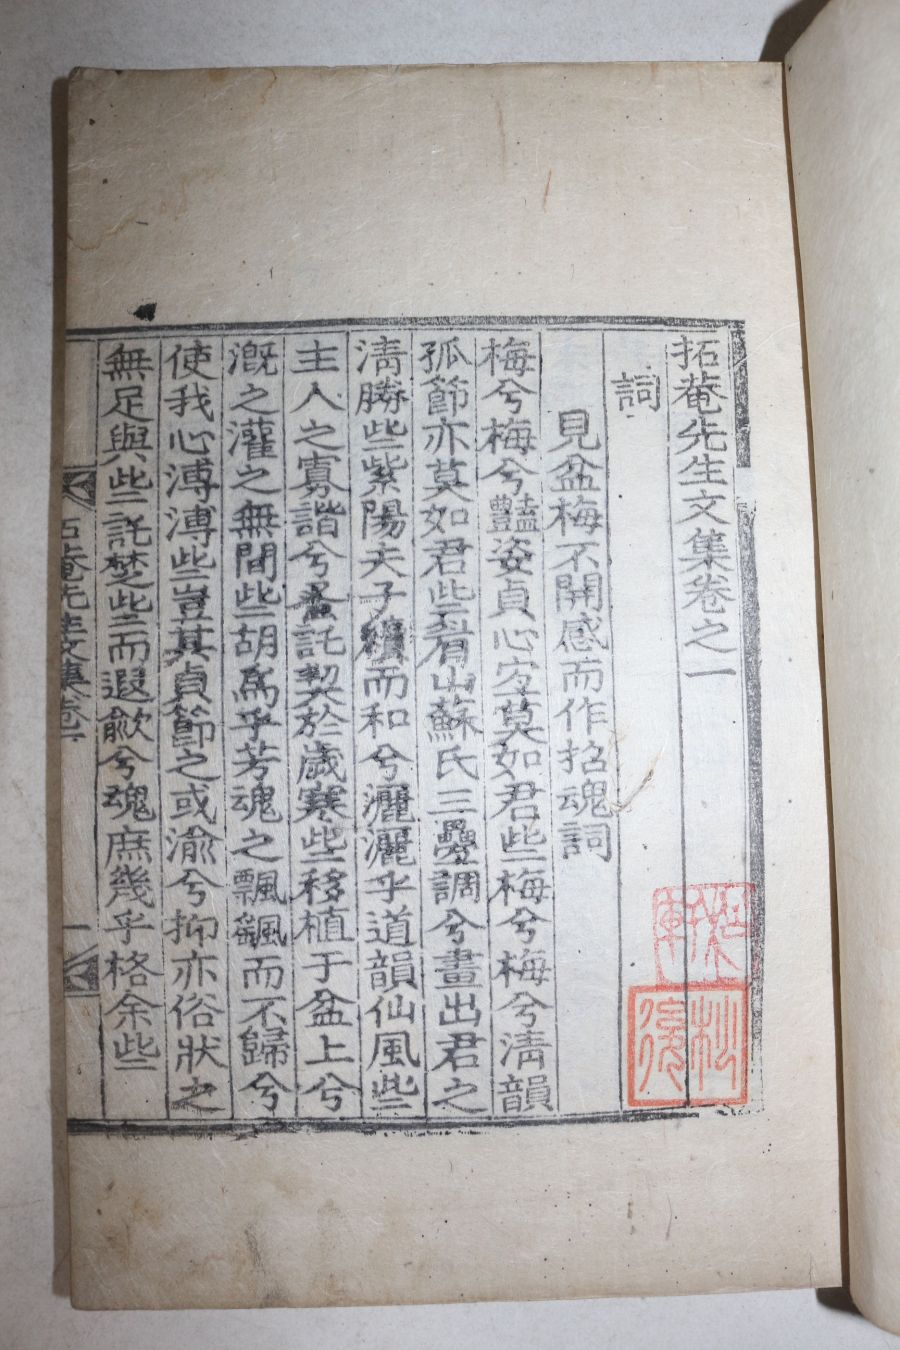 拓菴先生文集卷之一
詞
見盆梅不開感而作招魂詞
梅兮梅兮豔姿貞心定莫如君些梅兮梅兮淸韻
孤節亦莫如君些看山蘇氏三疊調兮畫出君之
淸勝些紫陽夫子續而和兮灑灑乎道韻仙風些
主人之寡諧兮託契於歲寒些移植于盆上兮
漑之灌之無間些胡爲乎芳魂之飄飄而不歸兮
使我心溥溥些豈其貞節之或渝兮抑亦俗狀之
無足與些託楚些而遐歈兮魂庶幾乎格余些
菴先生文集卷一
一